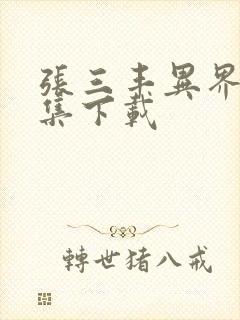 張三丰異界
集下載
轉世猪八戒